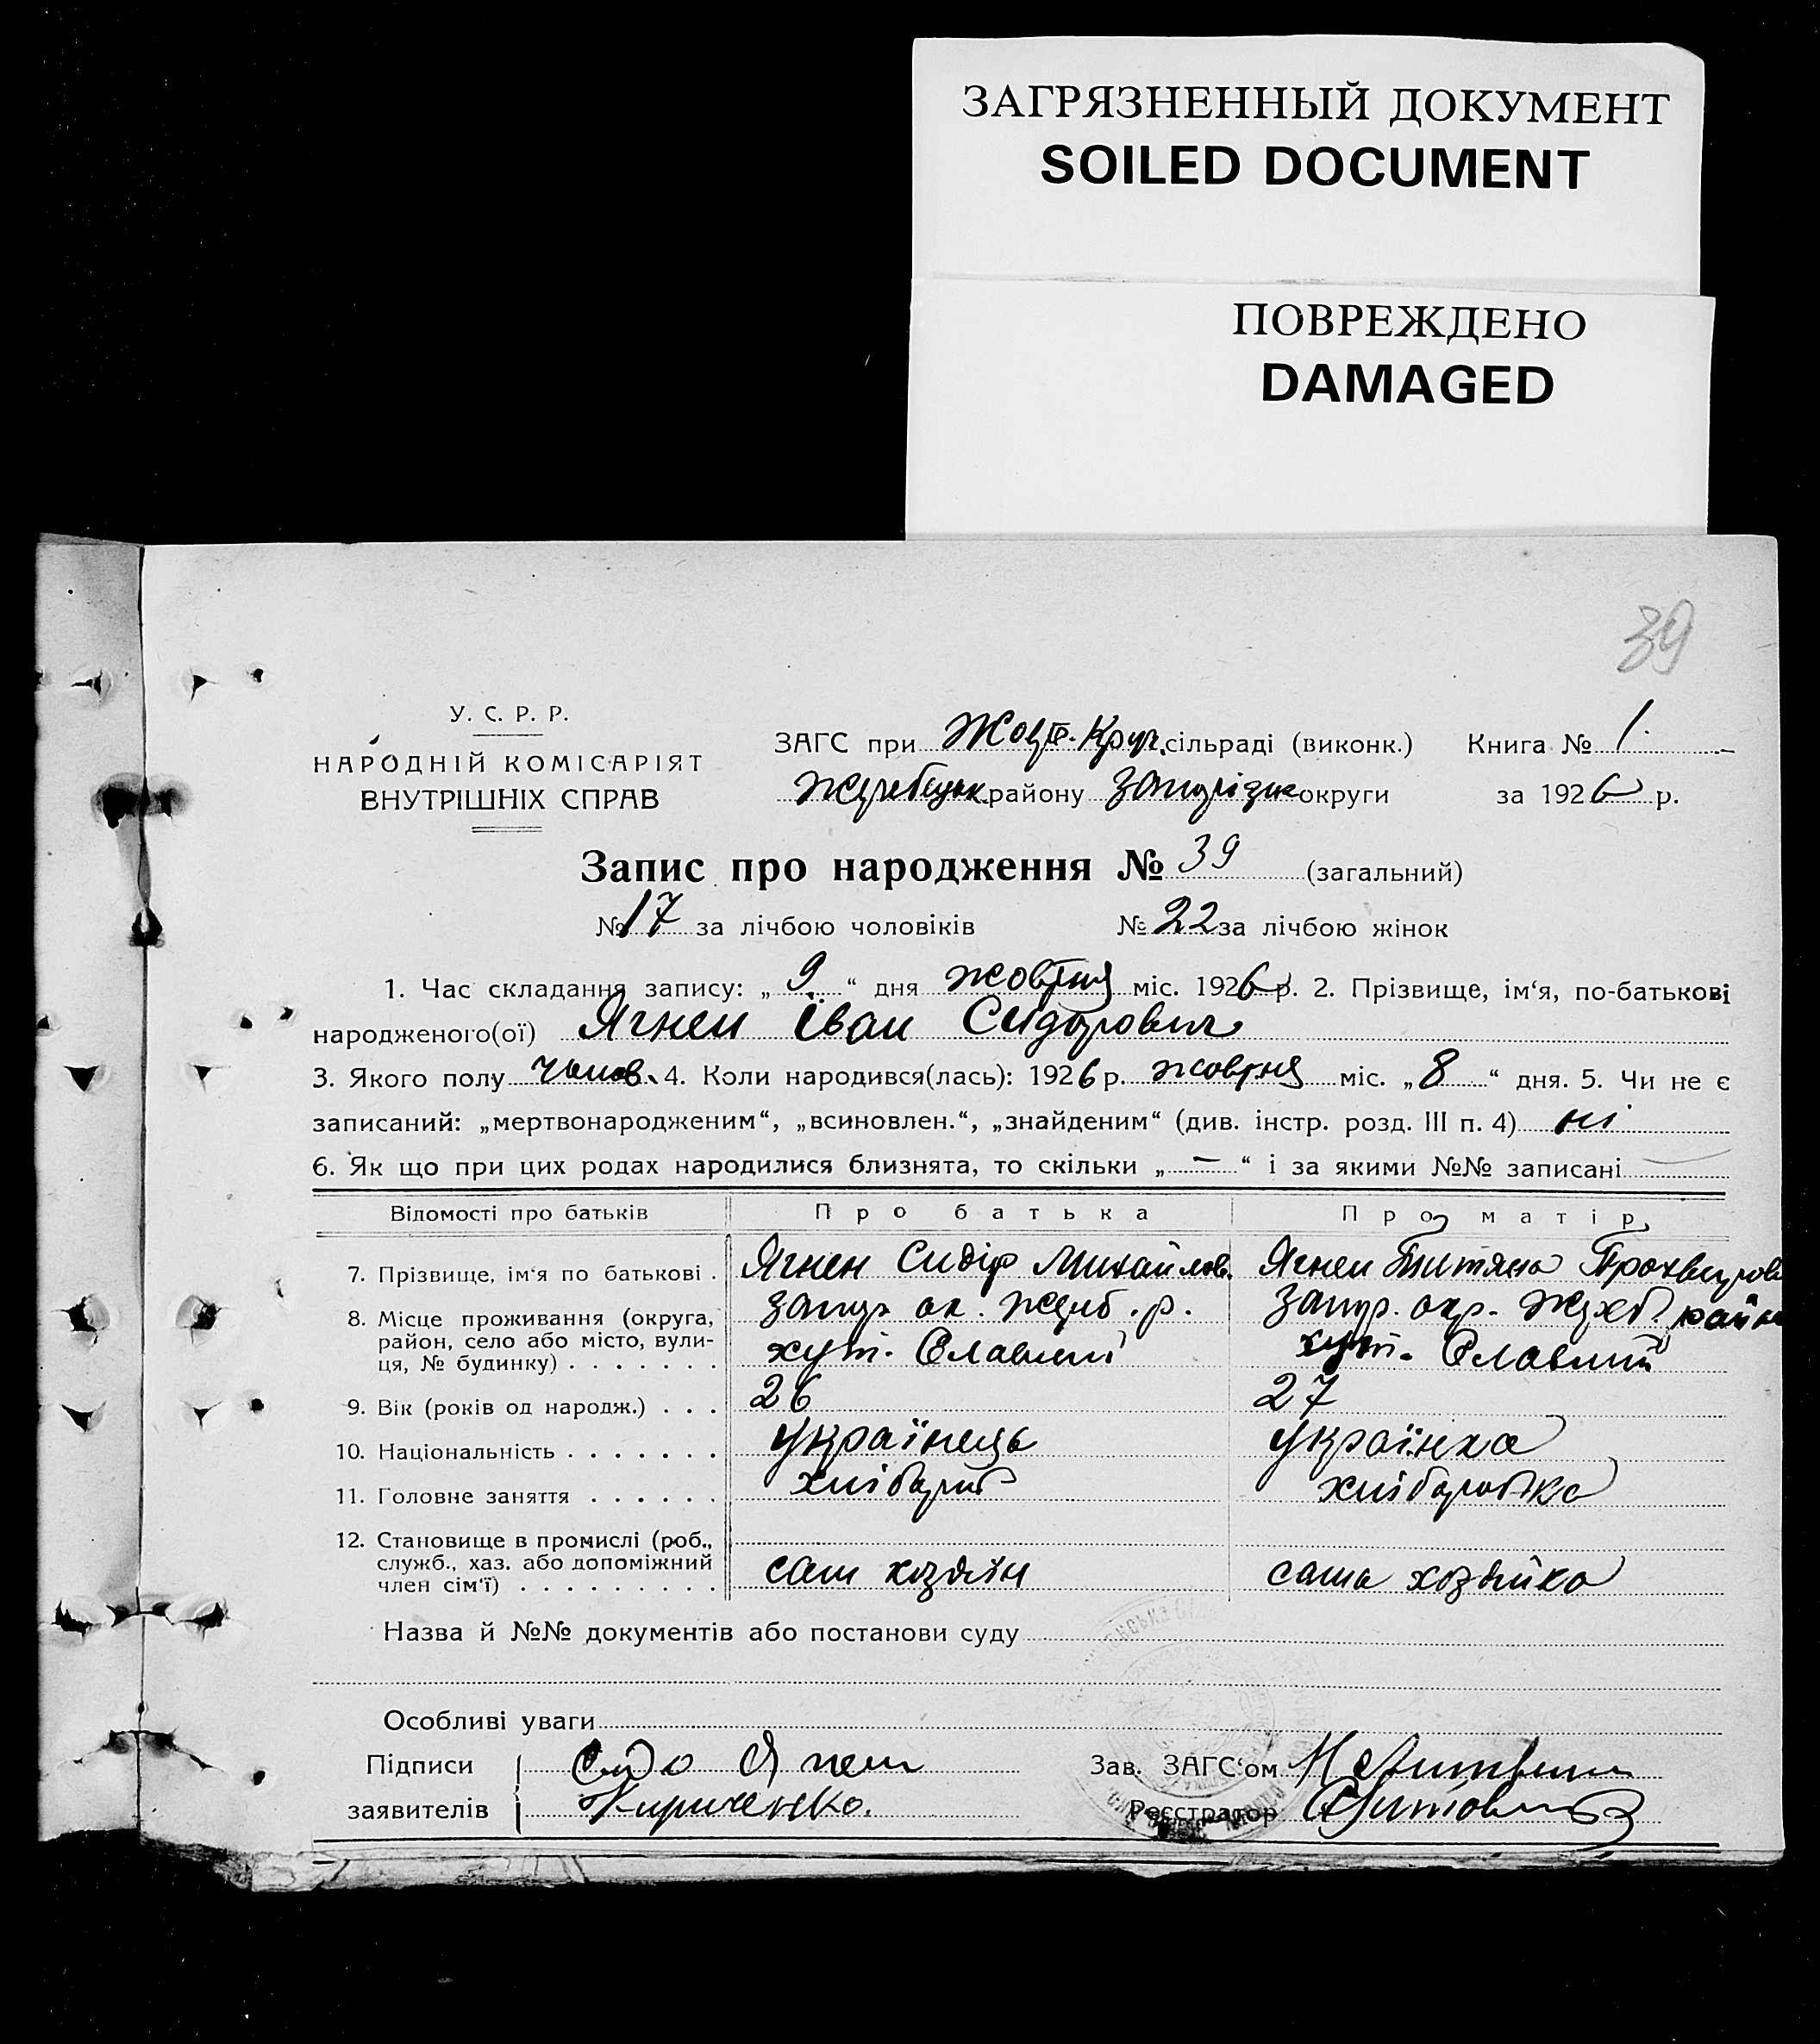 ЗАГРЯЗНЕННЫЙ ДОКУМЕНТ
SOILED DOCUMENT
ПОВРЕЖДЕНО
DAMAGED
39
У. С. Р. Р.
НАРОДНІЙ КОМІСАРІЯТ
ВНУТРІШНІХ СПРАВ
ЗАГС при Жовт. Круч. сільраді (виконк.) Книга № 1.
Жеребецьк. району Запорізьк округи за 1926 р.
Запис про народження № 39 (загальний)
№ 17 за лічбою чоловіків № 22 за лічбою жінок
1. Час складання запису: „ 9 “ дня жовтня міс. 1926 р. 2. Прізвище, ім‘я, по-батькові
народженого(ої) Ягнен Іван Сидорович
3. Якого полу чолов. 4. Коли народився(лась): 1926 р. жовтня міс. „ 8 “ дня. 5. Чи не є
записаний: „мертвонародженим“, „всиновлен.“, „знайденим“ (див. інстр. розд. III п. 4) ні
6. Як що при цих родах народилися близнята, то скільки „ — “ і за якими №№ записані —
Відомості про батьків Про батька Про матір
7. Прізвище, ім‘я по батькові . Ягнен Сидір Михайлов. Ягнен Титяна
8. Місце проживання (округа, Запор. ок. Жереб. р. Запор. окр. Жереб. район
район, село або місто, вули-
ця, № будинку) . . . . . . . хут. хут.
9. Вік (років од народж.) . . . 26 27
10. Національність . . . . . . . українець українка
11. Головне заняття . . . . . . хлібороб хліборобка
12. Становище в промислі (роб.,
служб., хаз. або допоміжний
член сім‘ї) . . . . . . . . . сам хозяїн сама хозяйка
Назва й №№ документів або постанови суду
Особливі уваги
Підписи Зав. ЗАГС‘ом
заявителів Кириченко. Реєстратор